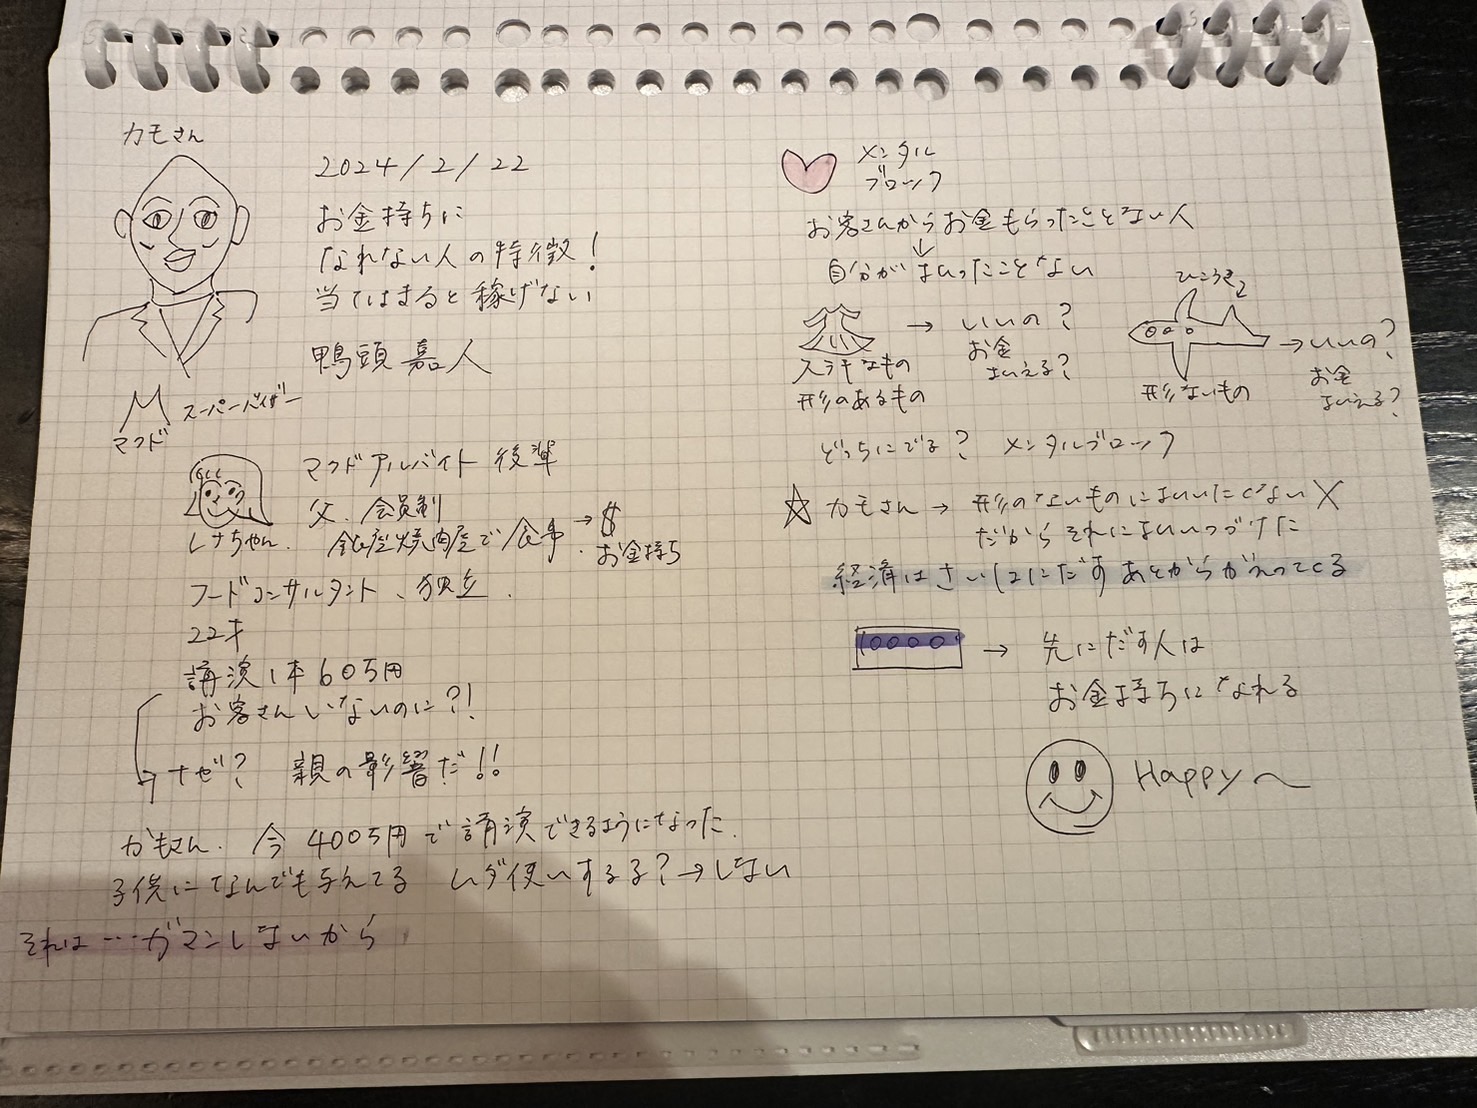 カモさん
2024/2/22
お金持ちに
なれない人の特徴!
当てはまると稼げない
鴨頭 嘉人
M スーパーバイザー
マクド
マクドアルバイト 後輩
父、会員制
銀座焼肉屋で食事→$
お金持ち
レナちゃん
フードコンサルタント、独立、
22才
講演1本605円
お客さんいないのに?!
→ナゼ? 親の影響だ!!
かもさん、今400万円で講演できるようになった、
子供になんでも与えてる ムダ使いするる?→しない
それは…ガマンしないから
メンタル
ブロック
お客さんからお金もらったことない人
↓
自分がはらったことない
→ いいの?
お金
はらえる?
ステキなもの
形のあるもの
ひこうき
→いいの?
お金
はらえる?
形ないもの
どっちにでる? メンタルブロック
☆ カモさん→ 形のないものにはらいたくない X
だからそれにはらいつづけた
経済はさいしょにだすあとからかえってくる
10000 → 先にだす人は
お金持ちになれる
Happy〜